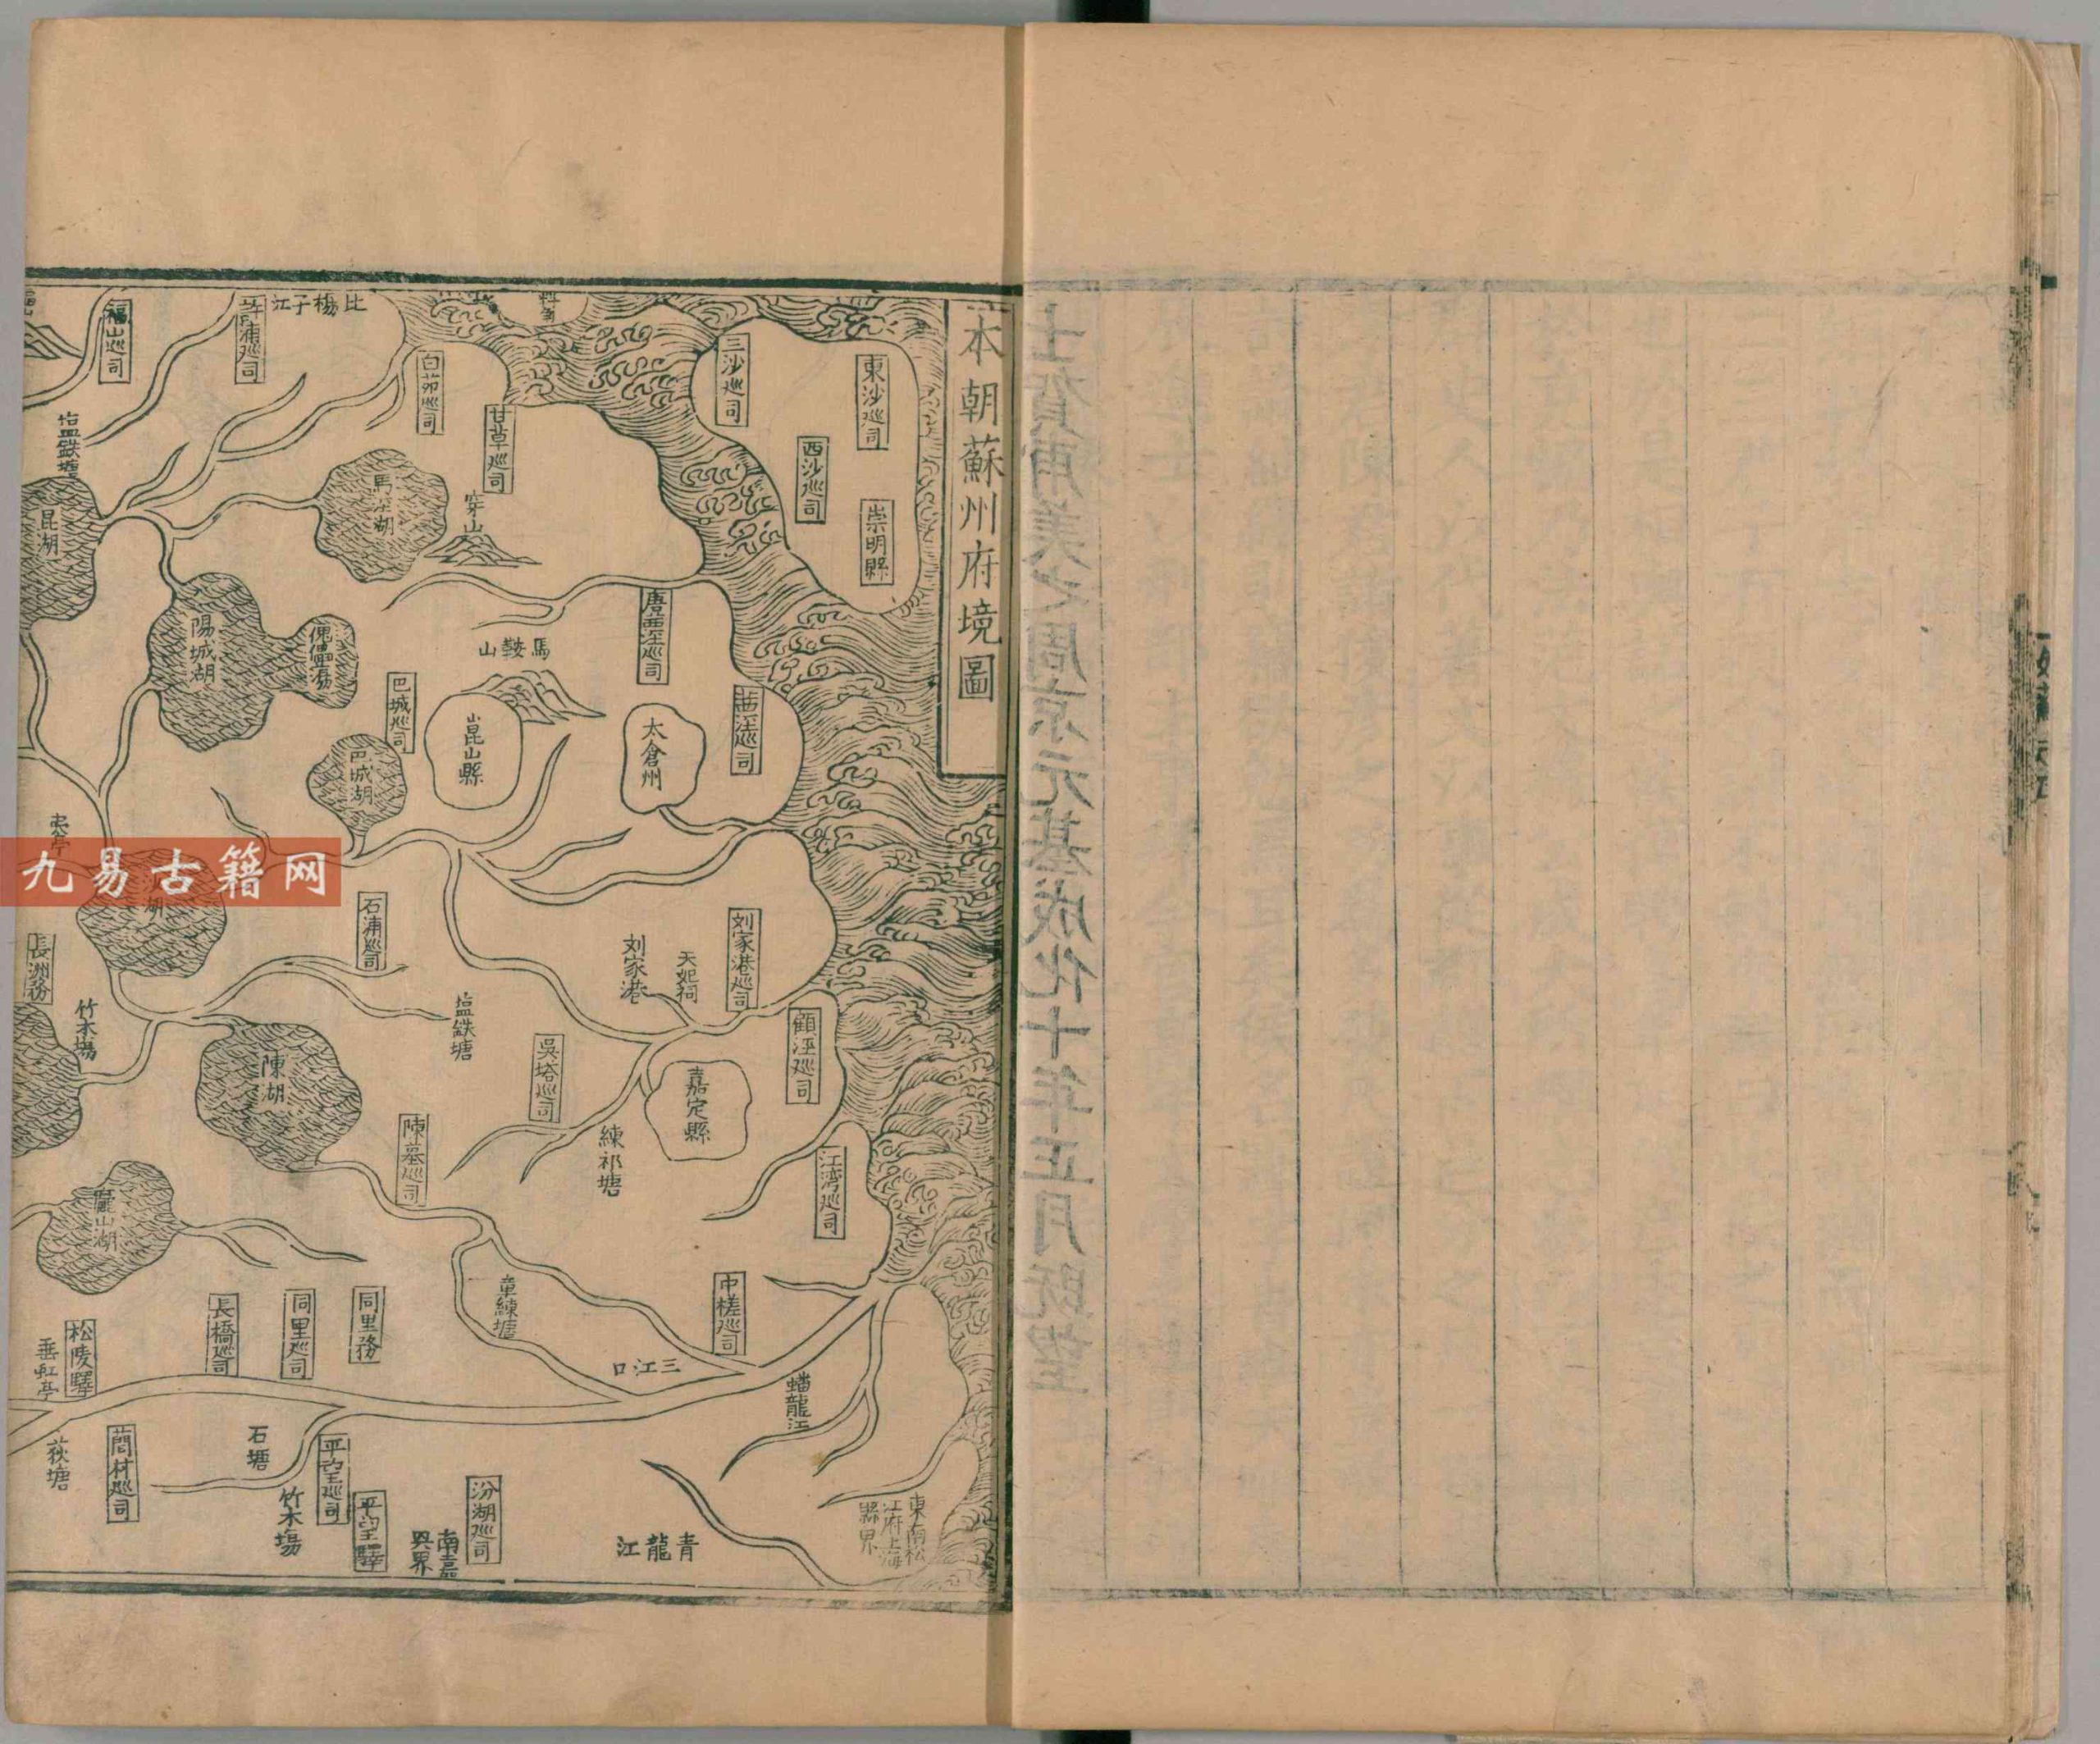 本朝蘇州府境圖
東沙巡司
崇明縣
西沙巡司
三沙巡司
甘草巡司
白茆巡司
許浦巡司
福山巡司
穿山
昆湖
陽城湖
傀儡湯
馬鞍山
巴城巡司
巴城湖
崑山縣
太倉州
唐茜涇巡司
茜涇巡司
九易古籍网
湖
石浦巡司
長洲務
竹木場
陳湖
塩鉄塘
吳塔巡司
刘家港
天妃祠
刘家港巡司
顧涇巡司
嘉定縣
練祁塘
江湾巡司
陳墓巡司
龐山湖
章練塘
中槎巡司
三江口
蟠龍江
同里務
同里巡司
長橋巡司
松陵驛
垂虹亭
荻塘
石塘
竹木塲
平望巡司
平望驛
汾湖巡司
南嘉興界
青龍江
東南松
江府上海
縣界
士賀甫美之周京元基成化十年正月既望